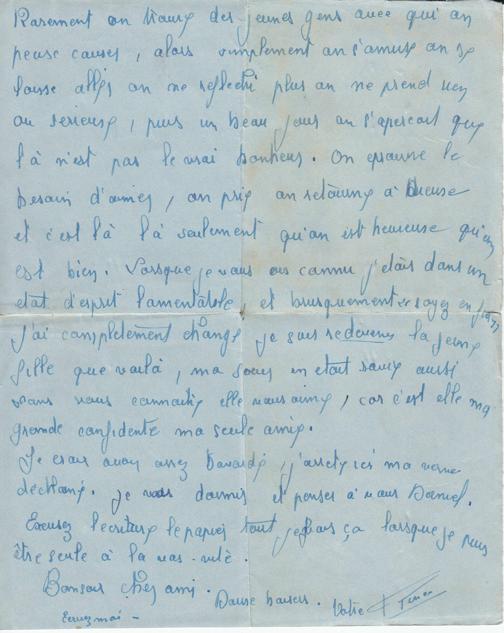 Rarement on trouve des jeunes gens avec qui on
peuse causer, alors simplement on s'amuse on se
laisse aller on ne reflechi plus on ne prend rien
au serieuse, puis un beau jour on s'apercoit que
là n'est pas le vrai bonheur. On eprouve le
besoin d'aimer, on prie on retourne à
et c'est là là seulement qu'on est heureuse qu'on
est bien. Lorsque je vous ais connu j'etais dans un
etat d'esprit lamentable, et brusquement soyez en fier
j'ai complètement changé je suis redevenue la jeune
fille que voilà, ma soeur en etait sauve aussi
sans vous connaitre elle vous aime, car c'est elle ma
grande confidente ma seule amie.
Je crois avoir assez bavardé, j'arrete ici ma verve
dechainé. je vais dormir et penser à vous Daniel.
Excusez l'ecriture le papier tout je fais ça lorsque je puis
être seule à la vas-vite.
Bonsoir cher ami.
Douse baisers. Votre
Ecrivez moi -